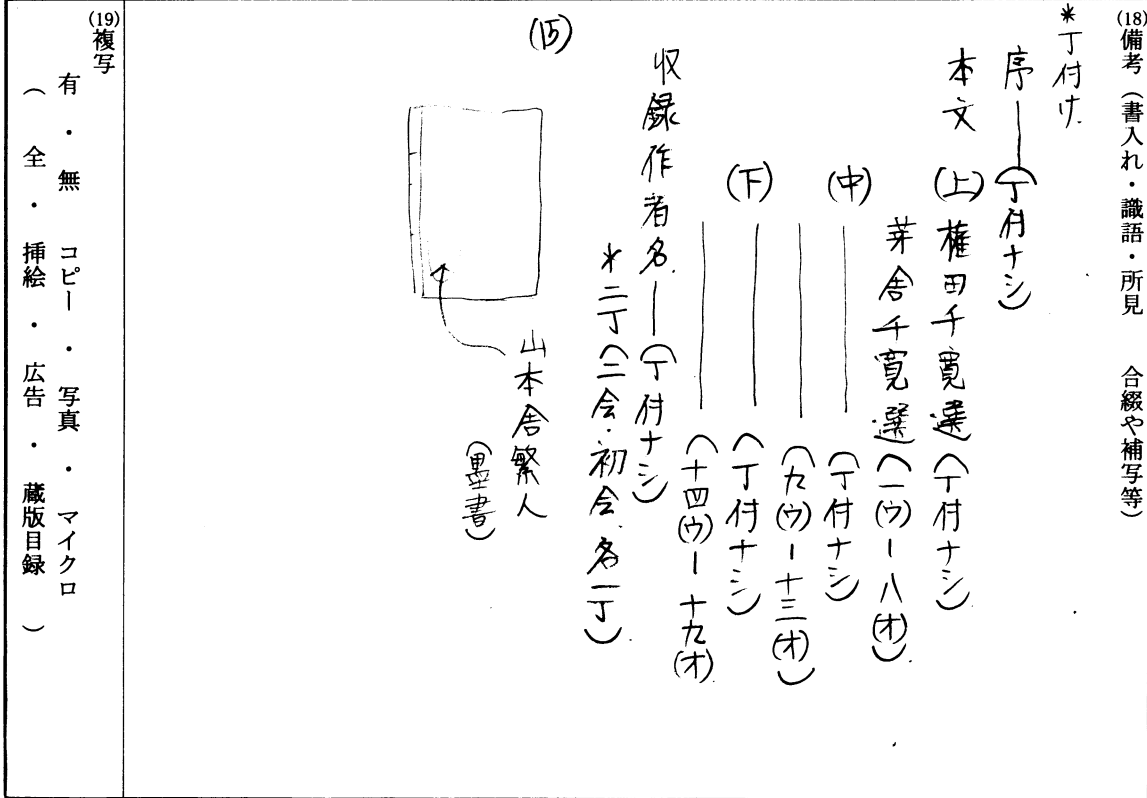 (18)備考（書入れ・識語・所見　合綴や補写等）
*丁付け.
序──(丁付ナシ)
本文　(上)　権田千寛選　(丁付ナシ)
芽舎千寛選　(一(ウ)ー八(オ))
(中)　──　(丁付ナシ)
──　(九(ウ)ー十三(オ))
(下)　──　(丁付ナシ)
──　(十四(ウ)ー十九(オ)
収録作者名──(丁付ナシ)
*二丁(二会・初会、各一丁)
(15)
山本舎繁人
(墨書)
(19)複写
有・無　コピー・写真・マイクロ
（　全・挿絵・広告・蔵版目録　）